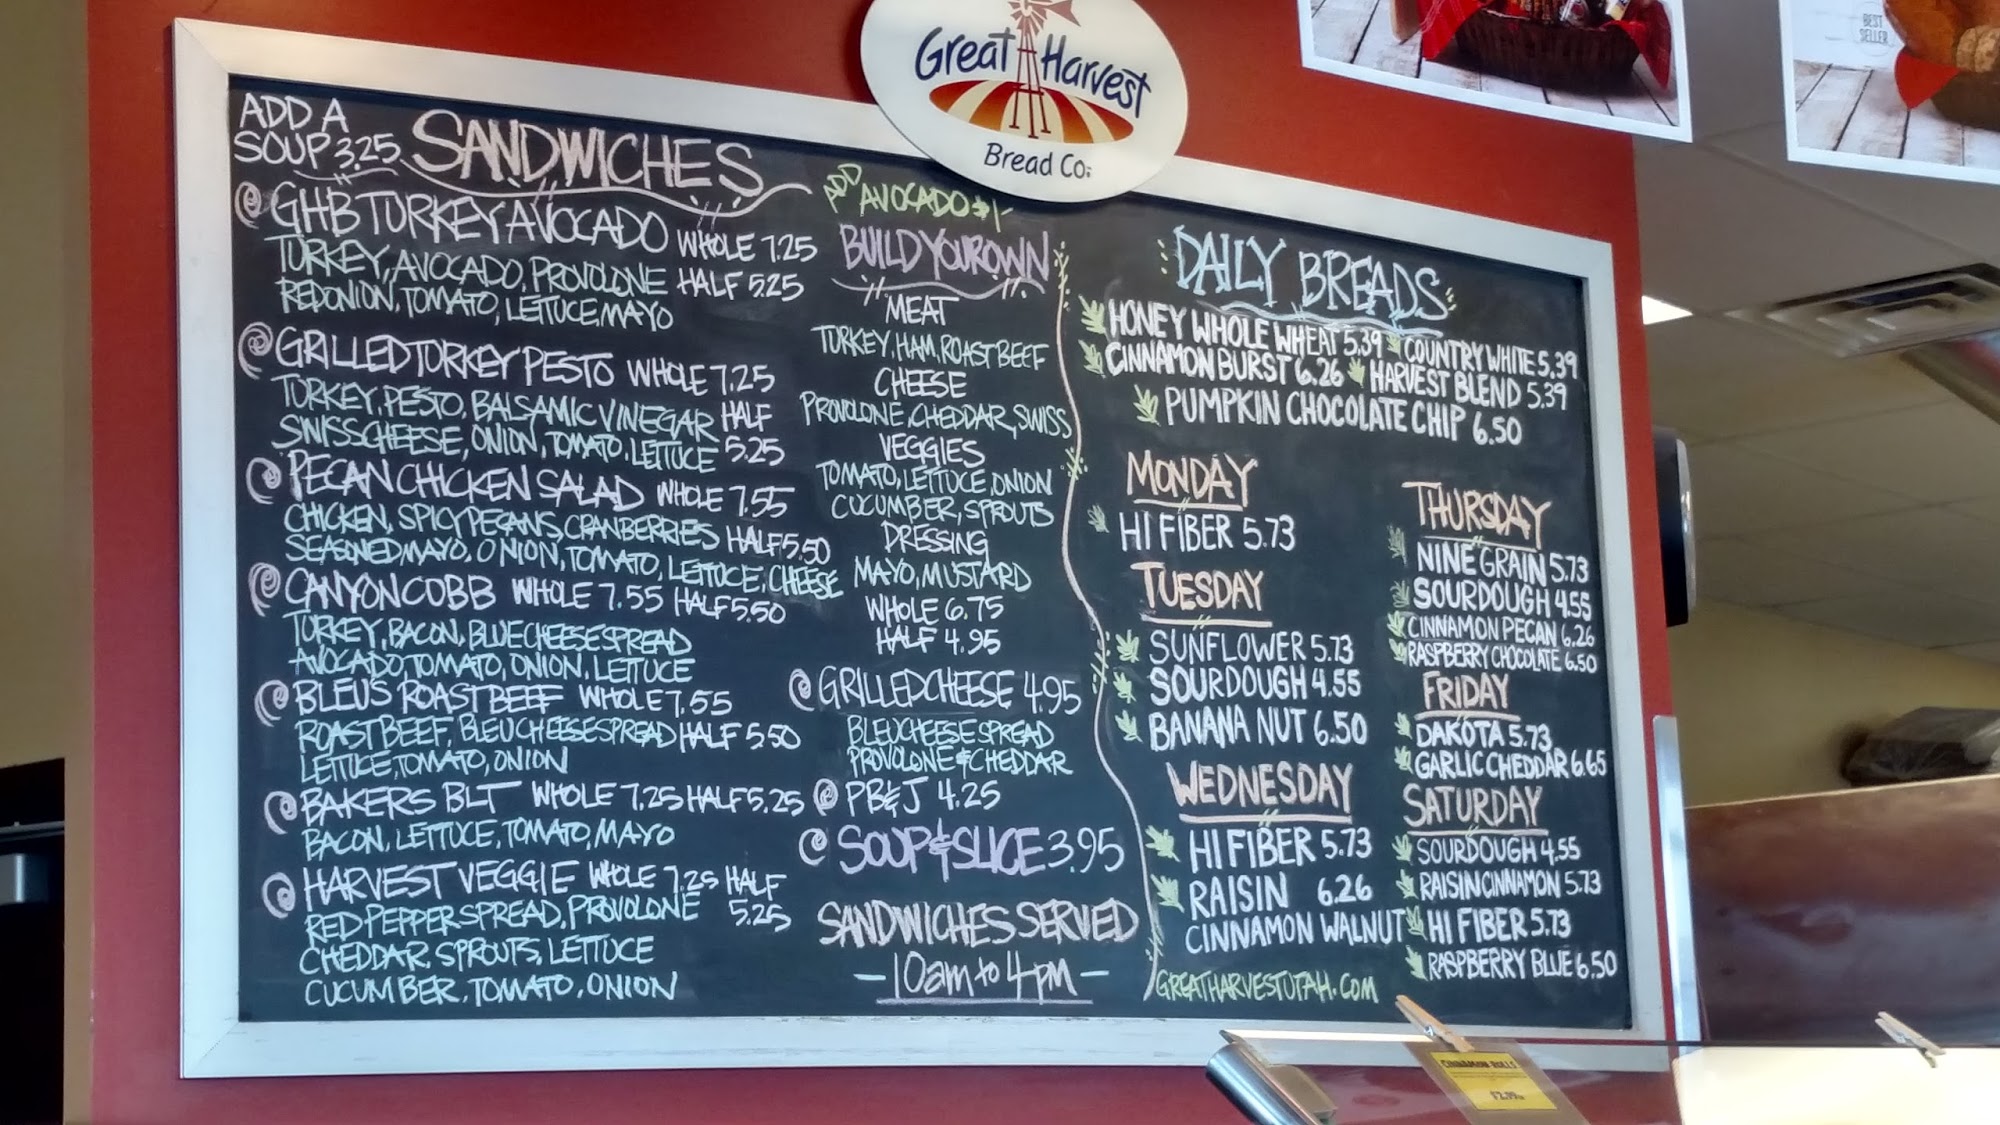 Great Harvest
Bread Co.
BEST
SELLER
ADD A
SOUP 3.25
SANDWICHES
GHB TURKEY AVOCADO WHOLE 7.25
TURKEY, AVOCADO, PROVOLONE HALF 5.25
RED ONION, TOMATO, LETTUCE, MAYO
GRILLED TURKEY PESTO WHOLE 7.25
TURKEY, PESTO, BALSAMIC VINEGAR HALF
SWISS CHEESE, ONION, TOMATO, LETTUCE 5.25
PECAN CHICKEN SALAD WHOLE 7.55
CHICKEN, SPICY PECANS, CRANBERRIES HALF 5.50
SEASONED MAYO, ONION, TOMATO, LETTUCE, CHEESE
CANYON COBB WHOLE 7.55 HALF 5.50
TURKEY, BACON, BLUE CHEESE SPREAD
AVOCADO, TOMATO, ONION, LETTUCE
BLEUS ROAST BEEF WHOLE 7.55
ROAST BEEF, BLEU CHEESE SPREAD HALF 5.50
LETTUCE, TOMATO, ONION
BAKERS BLT WHOLE 7.25 HALF 5.25
BACON, LETTUCE, TOMATO, MAYO
HARVEST VEGGIE WHOLE 7.25 HALF
RED PEPPER SPREAD, PROVOLONE 5.25
CHEDDAR, SPROUTS, LETTUCE
CUCUMBER, TOMATO, ONION
ADD AVOCADO $1-
BUILD YOUR OWN
MEAT
TURKEY, HAM, ROAST BEEF
CHEESE
PROVOLONE, CHEDDAR, SWISS
VEGGIES
TOMATO, LETTUCE, ONION
CUCUMBER, SPROUTS
DRESSING
MAYO, MUSTARD
WHOLE 6.75
HALF 4.95
GRILLED CHEESE 4.95
BLEU CHEESE SPREAD
PROVOLONE & CHEDDAR
PB&J 4.25
SOUP & SLICE 3.95
SANDWICHES SERVED
- 10am to 4pm -
DAILY BREADS
HONEY WHOLE WHEAT 5.39 COUNTRY WHITE 5.39
CINNAMON BURST 6.26 HARVEST BLEND 5.39
PUMPKIN CHOCOLATE CHIP 6.50
MONDAY
HI FIBER 5.73
TUESDAY
SUNFLOWER 5.73
SOURDOUGH 4.55
BANANA NUT 6.50
WEDNESDAY
HI FIBER 5.73
RAISIN 6.26
CINNAMON WALNUT
GREATHARVESTUTAH.COM
THURSDAY
NINE GRAIN 5.73
SOURDOUGH 4.55
CINNAMON PECAN 6.26
RASPBERRY CHOCOLATE 6.50
FRIDAY
DAKOTA 5.73
GARLIC CHEDDAR 6.65
SATURDAY
SOURDOUGH 4.55
RAISIN CINNAMON 5.73
HI FIBER 5.73
RASPBERRY BLUE 6.50
CINNAMON ROLLS